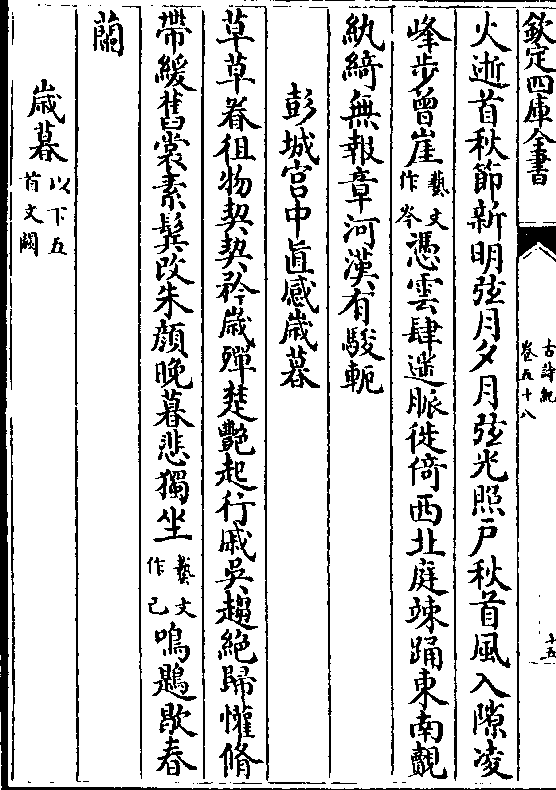 欽定四庫全書
古詩紀
卷五十八
十五
火逝首秋節新明弦月夕月弦光照戶秋首風入隙凌
峰步曾崖藝文作岑憑雲肆遥脈徙倚西北庭竦踊東南覿
紈綺無報章河漢有駿軛
彭城宫中直感歲暮
草草眷徂物契契矜歲殫楚艶起行戚吳趨絕歸懽脩
帶緩舊裳素鬢改朱顔晚暮悲獨坐藝文作己鳴鶗歇春
蘭
歲暮以下五首文闕